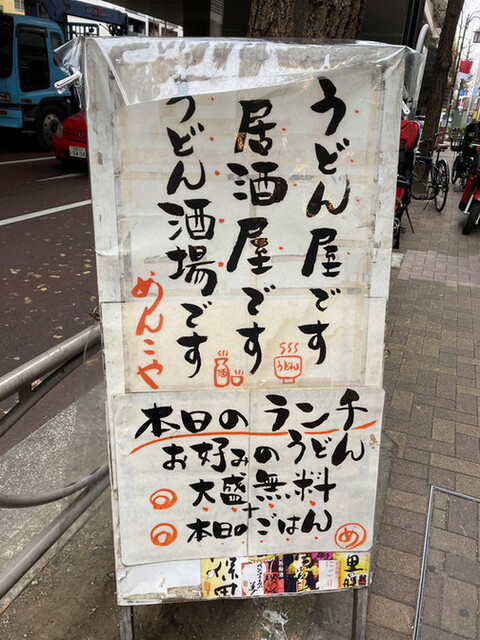 うどん屋です
居酒屋です
うどん酒場です
めんこや
うどん
本日のランチ
お好みのうどん
大盛無料
+
本日のごはん
め